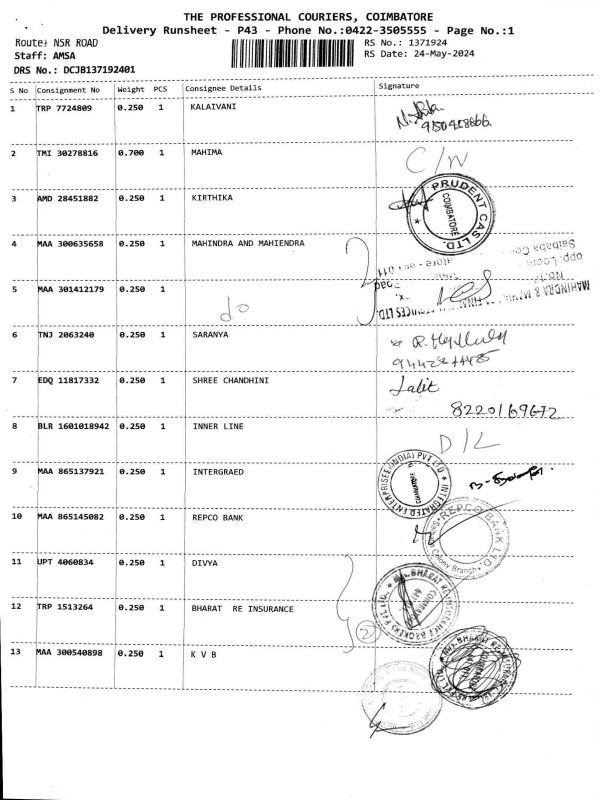 THE PROFESSIONAL COURIERS, COIMBATORE
Delivery Runsheet - P43 - Phone No.:0422-3505555 - Page No.:1
Route: NSR ROAD
RS No.: 1371924
Staff: AMSA
RS Date: 24-May-2024
DRS No.: DCJB137192401
S No Consignment No Weight PCS Consignee Details Signature
1 TRP 7724809 0.250 1 KALAIVANI
2 TMI 30278816 0.700 1 MAHIMA
C/N
3 AMD 28451882 0.250 1 KIRTHIKA
PRUDENT CAS LTD.
COIMBATORE
4 MAA 300635658 0.250 1 MAHINDRA AND MAHIENDRA
5 MAA 301412179 0.250 1
do
6 TNJ 2063240 0.250 1 SARANYA
7 EDQ 11817332 0.250 1 SHREE CHANDHINI
Lalit
8220169672
8 BLR 1601018942 0.250 1 INNER LINE
D/L
9 MAA 865137921 0.250 1 INTERGRAED
INTEGRATED ENTERPRISES (INDIA) PVT LTD
10 MAA 865145082 0.250 1 REPCO BANK
REPCO BANK LTD.
Colony Branch
11 UPT 4060834 0.250 1 DIVYA
12 TRP 1513264 0.250 1 BHARAT RE INSURANCE
2
13 MAA 300540898 0.250 1 K V B